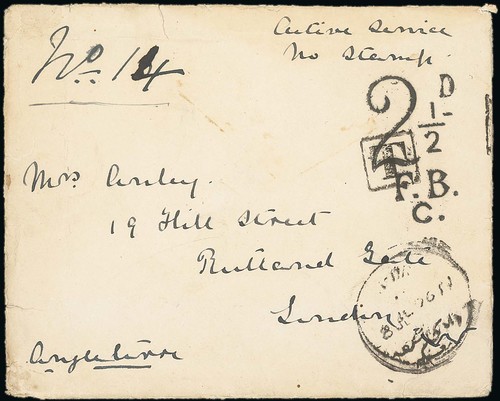 No. 14
Active Service
No Stamp.
2 1/2 D
T
F. B.
C.
Mrs. Anley.
19 Hill Street
Rutland Gate
London
Angleterre